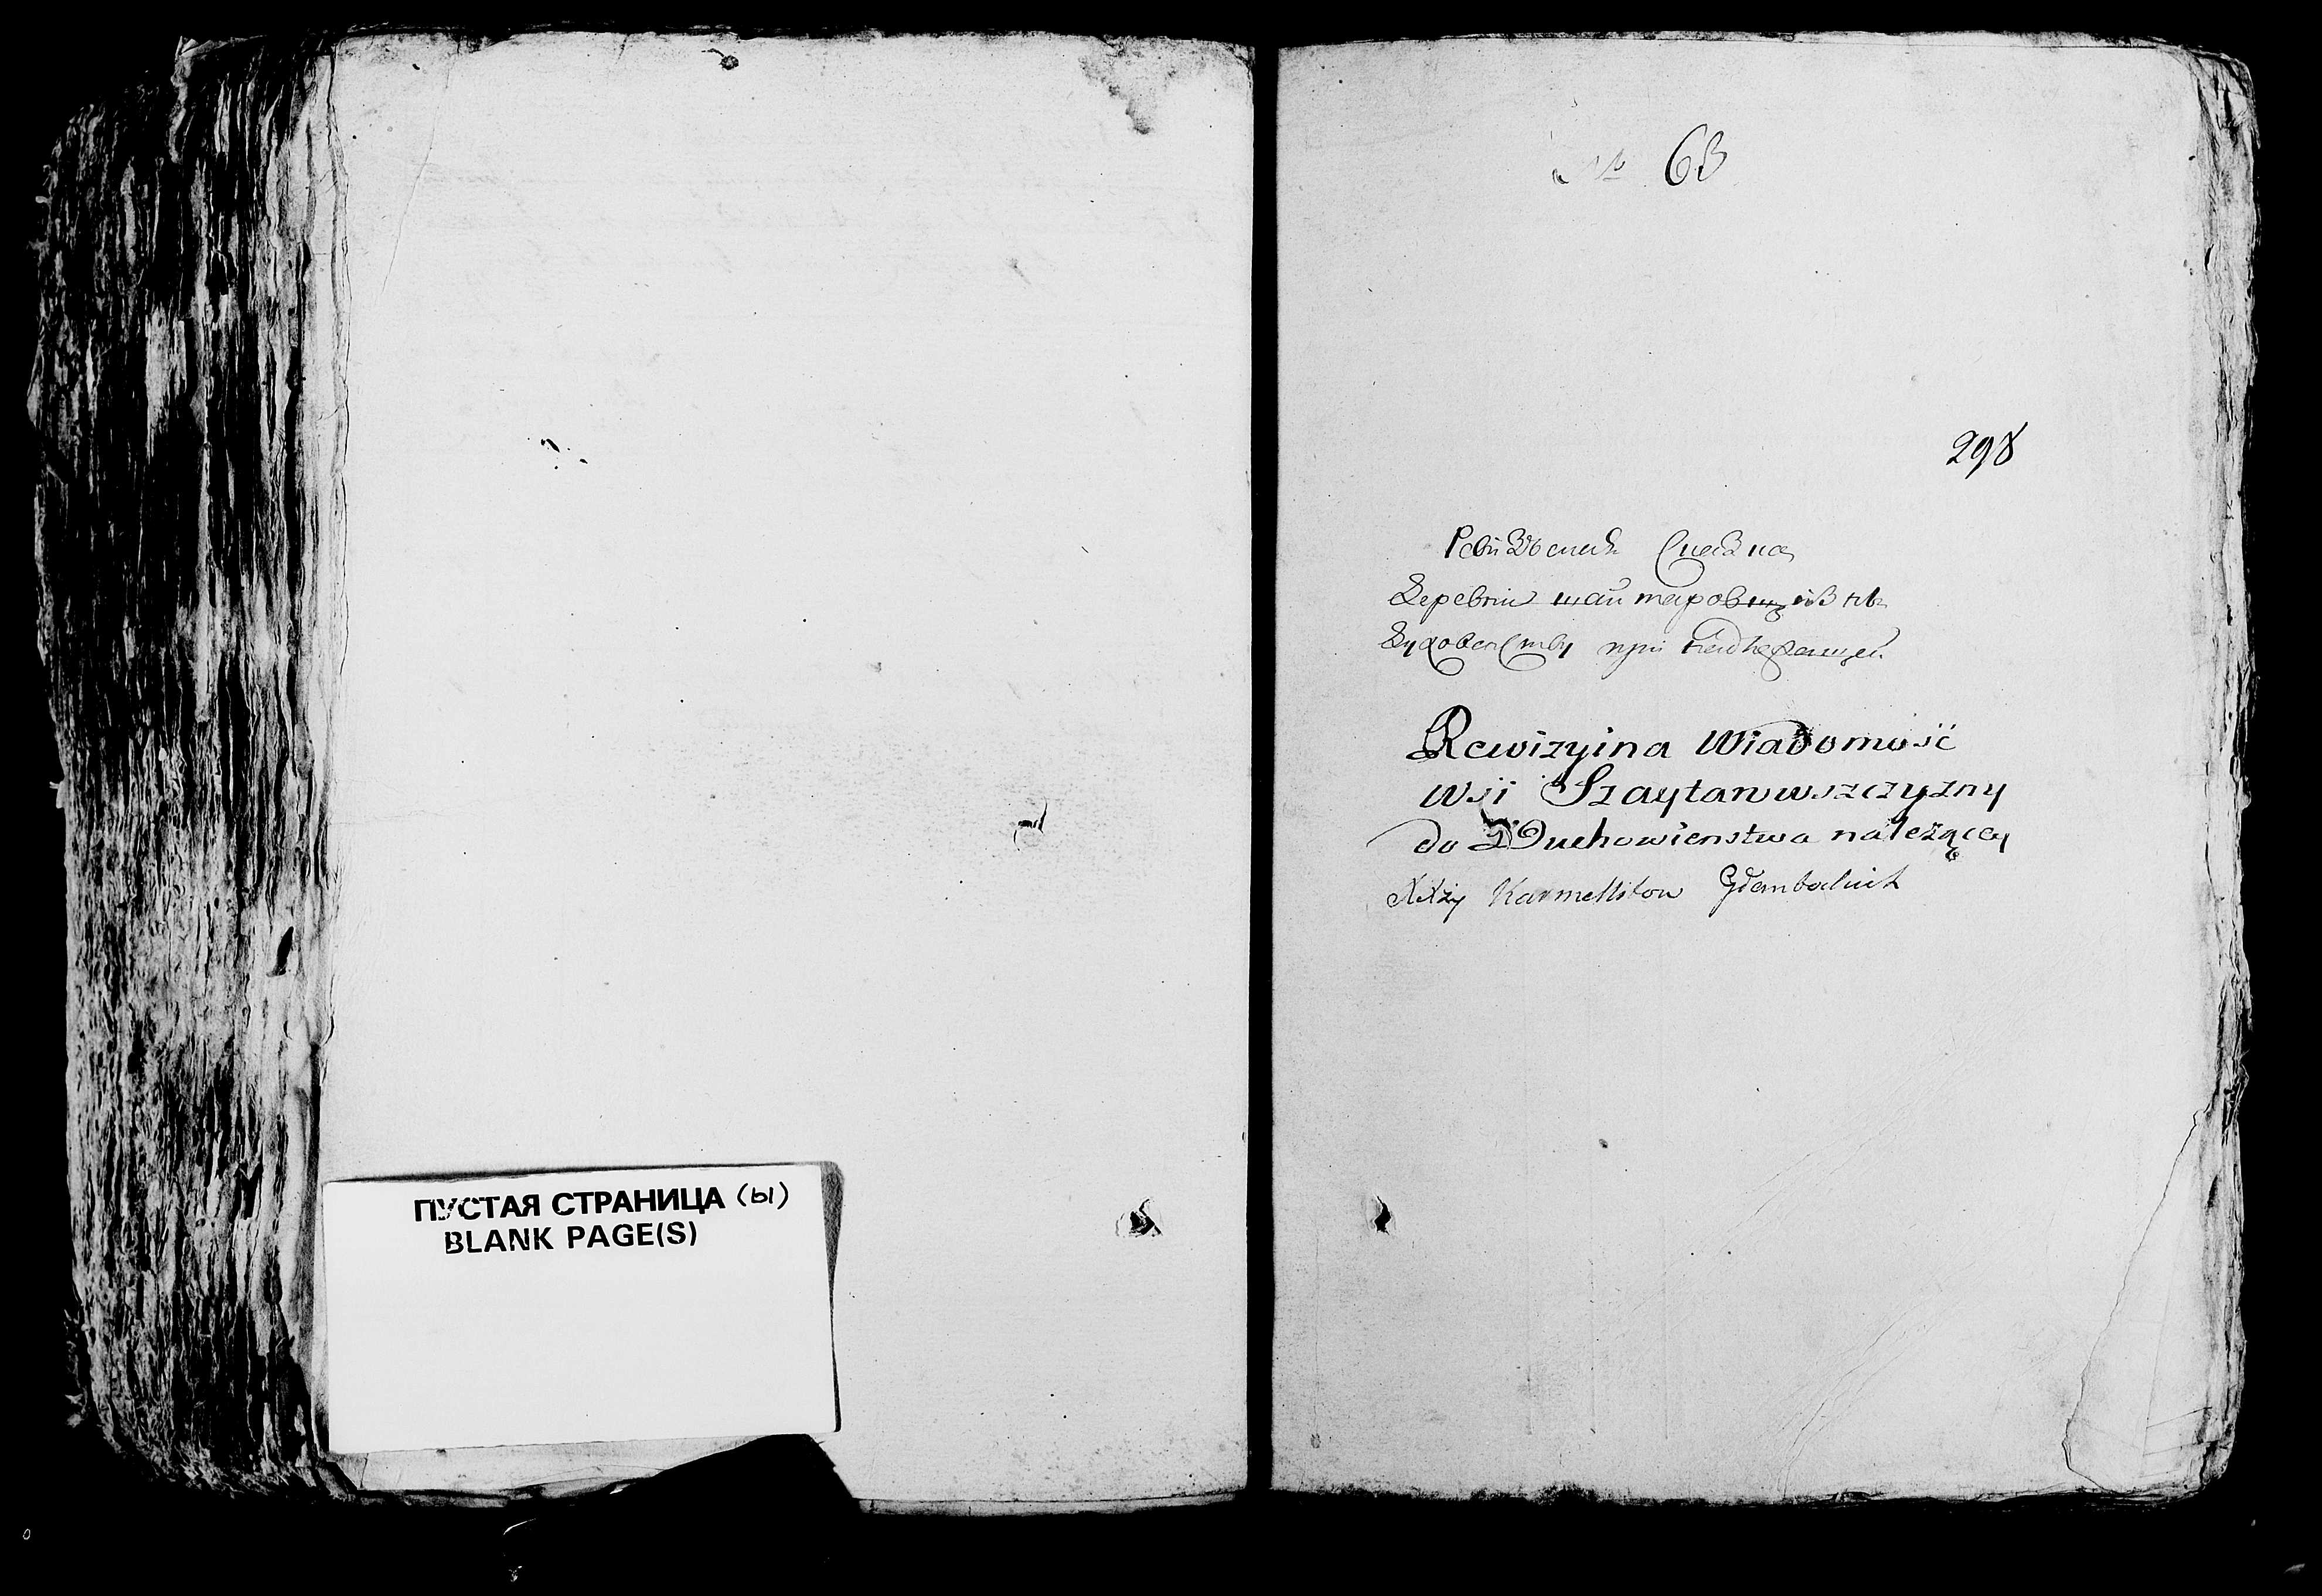 ПУСТАЯ СТРАНИЦА (ы)
BLANK PAGE(S)
№ 63
298
Ревизская Сказка
Деревни шайтаровщизнъ
Духовенству принадлежащей
Rewizyina Wiadomość
wsi Szaytarowszczyzny
do Duchowienstwa należącey
XXży Karmellitow Głembockich